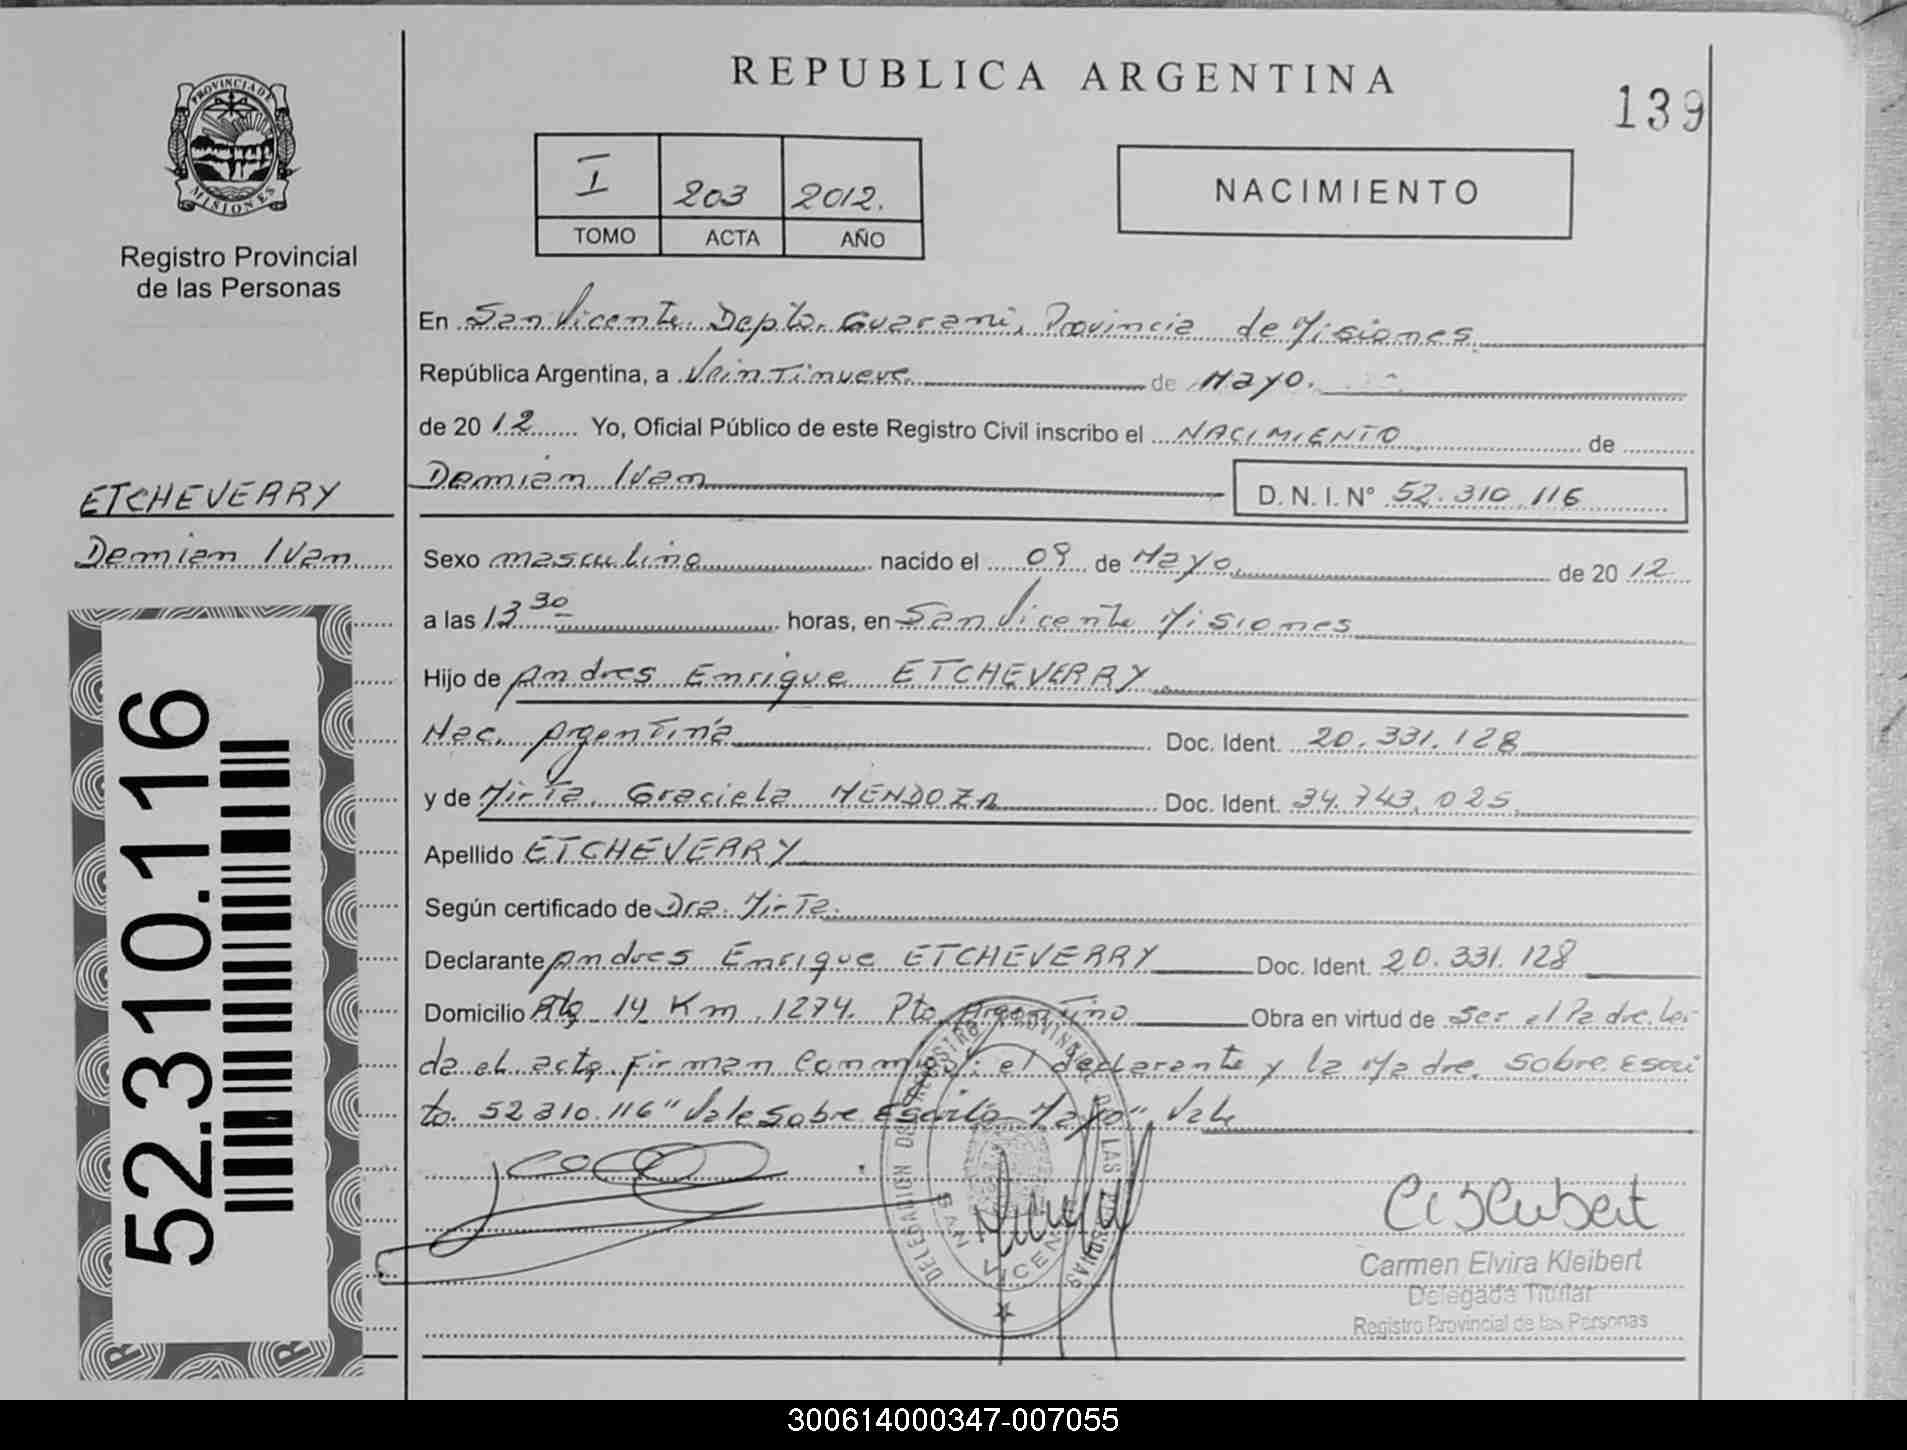 REPUBLICA ARGENTINA
139
PROVINCIA DE MISIONES
Registro Provincial
de las Personas
I 203 2012.
TOMO ACTA AÑO
NACIMIENTO
En San Vicente. Depto. Guarani, Provincia de Misiones
República Argentina, a Veintinueve de Mayo.
de 20 12 Yo, Oficial Público de este Registro Civil inscribo el NACIMIENTO de
Demian Ivan D. N. I. N° 52.310.116
ETCHEVERRY
Demian Ivan
Sexo masculino nacido el 09 de Mayo de 20 12
a las 13 30 horas, en San Vicente Misiones
Hijo de Andres Enrique ETCHEVERRY
Nac. Argentina Doc. Ident. 20.331.128
y de Mirta Graciela MENDOZA Doc. Ident. 34.743.025
Apellido ETCHEVERRY
Según certificado de Dra. Mirta
Declarante Andres Enrique ETCHEVERRY Doc. Ident. 20.331.128
Domicilio Rta 14 Km 1274. Pto Argentino Obra en virtud de Ser el Padre. Lei
da el acta firman Conmigo: el declarante y la Madre. Sobre Escri
to. 52.310.116 "Vale Sobre Escrito Mayo" Vale
52.310.116
DELEGACION DEL REGISTRO PROVINCIAL DE LAS PERSONAS
SAN VICENTE
Carmen Elvira Kleibert
Delegada Titular
Registro Provincial de las Personas
300614000347-007055